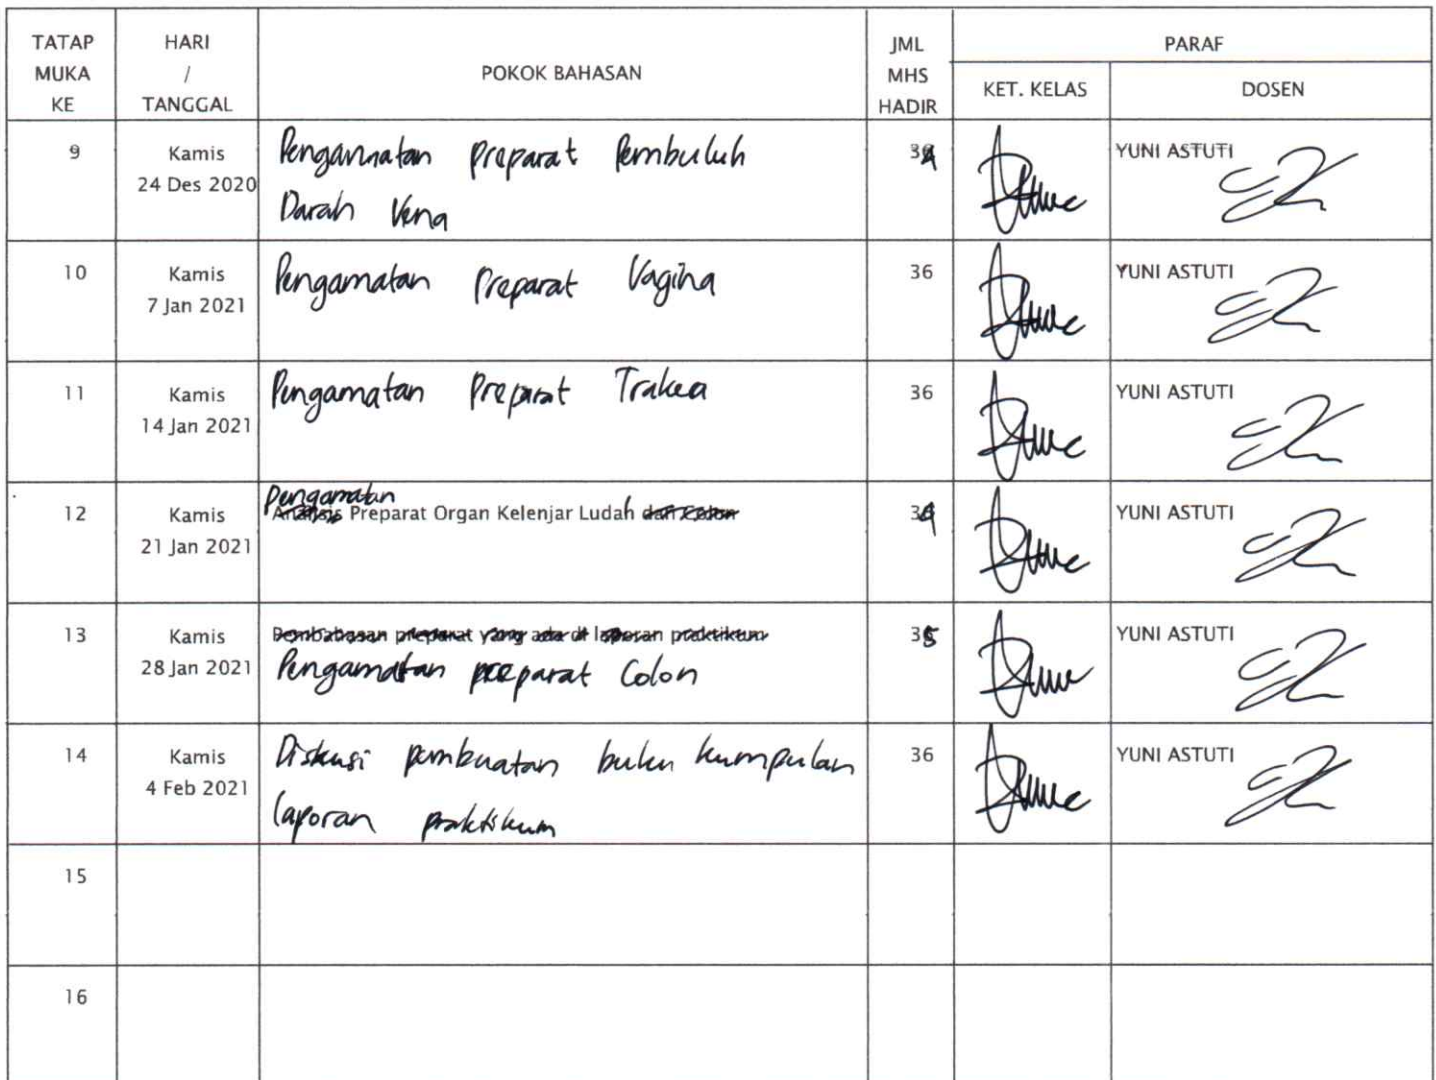 TATAP MUKA KE
HARI / TANGGAL
POKOK BAHASAN
JML MHS HADIR
PARAF
KET. KELAS
DOSEN
9
Kamis
24 Des 2020
Pengamatan preparat Pembuluh
Darah Vena
YUNI ASTUTI
10
Kamis
7 Jan 2021
Pengamatan Preparat Vagina
36
YUNI ASTUTI
11
Kamis
14 Jan 2021
Pengamatan Preparat Trakea
36
YUNI ASTUTI
12
Kamis
21 Jan 2021
Pengamatan
Analisis Preparat Organ Kelenjar Ludah dan Colon
YUNI ASTUTI
13
Kamis
28 Jan 2021
Pembahasan preparat yang ada di laporan praktikum
Pengamatan preparat Colon
35
YUNI ASTUTI
14
Kamis
4 Feb 2021
Diskusi pembuatan buku kumpulan
laporan praktikum
36
YUNI ASTUTI
15
16